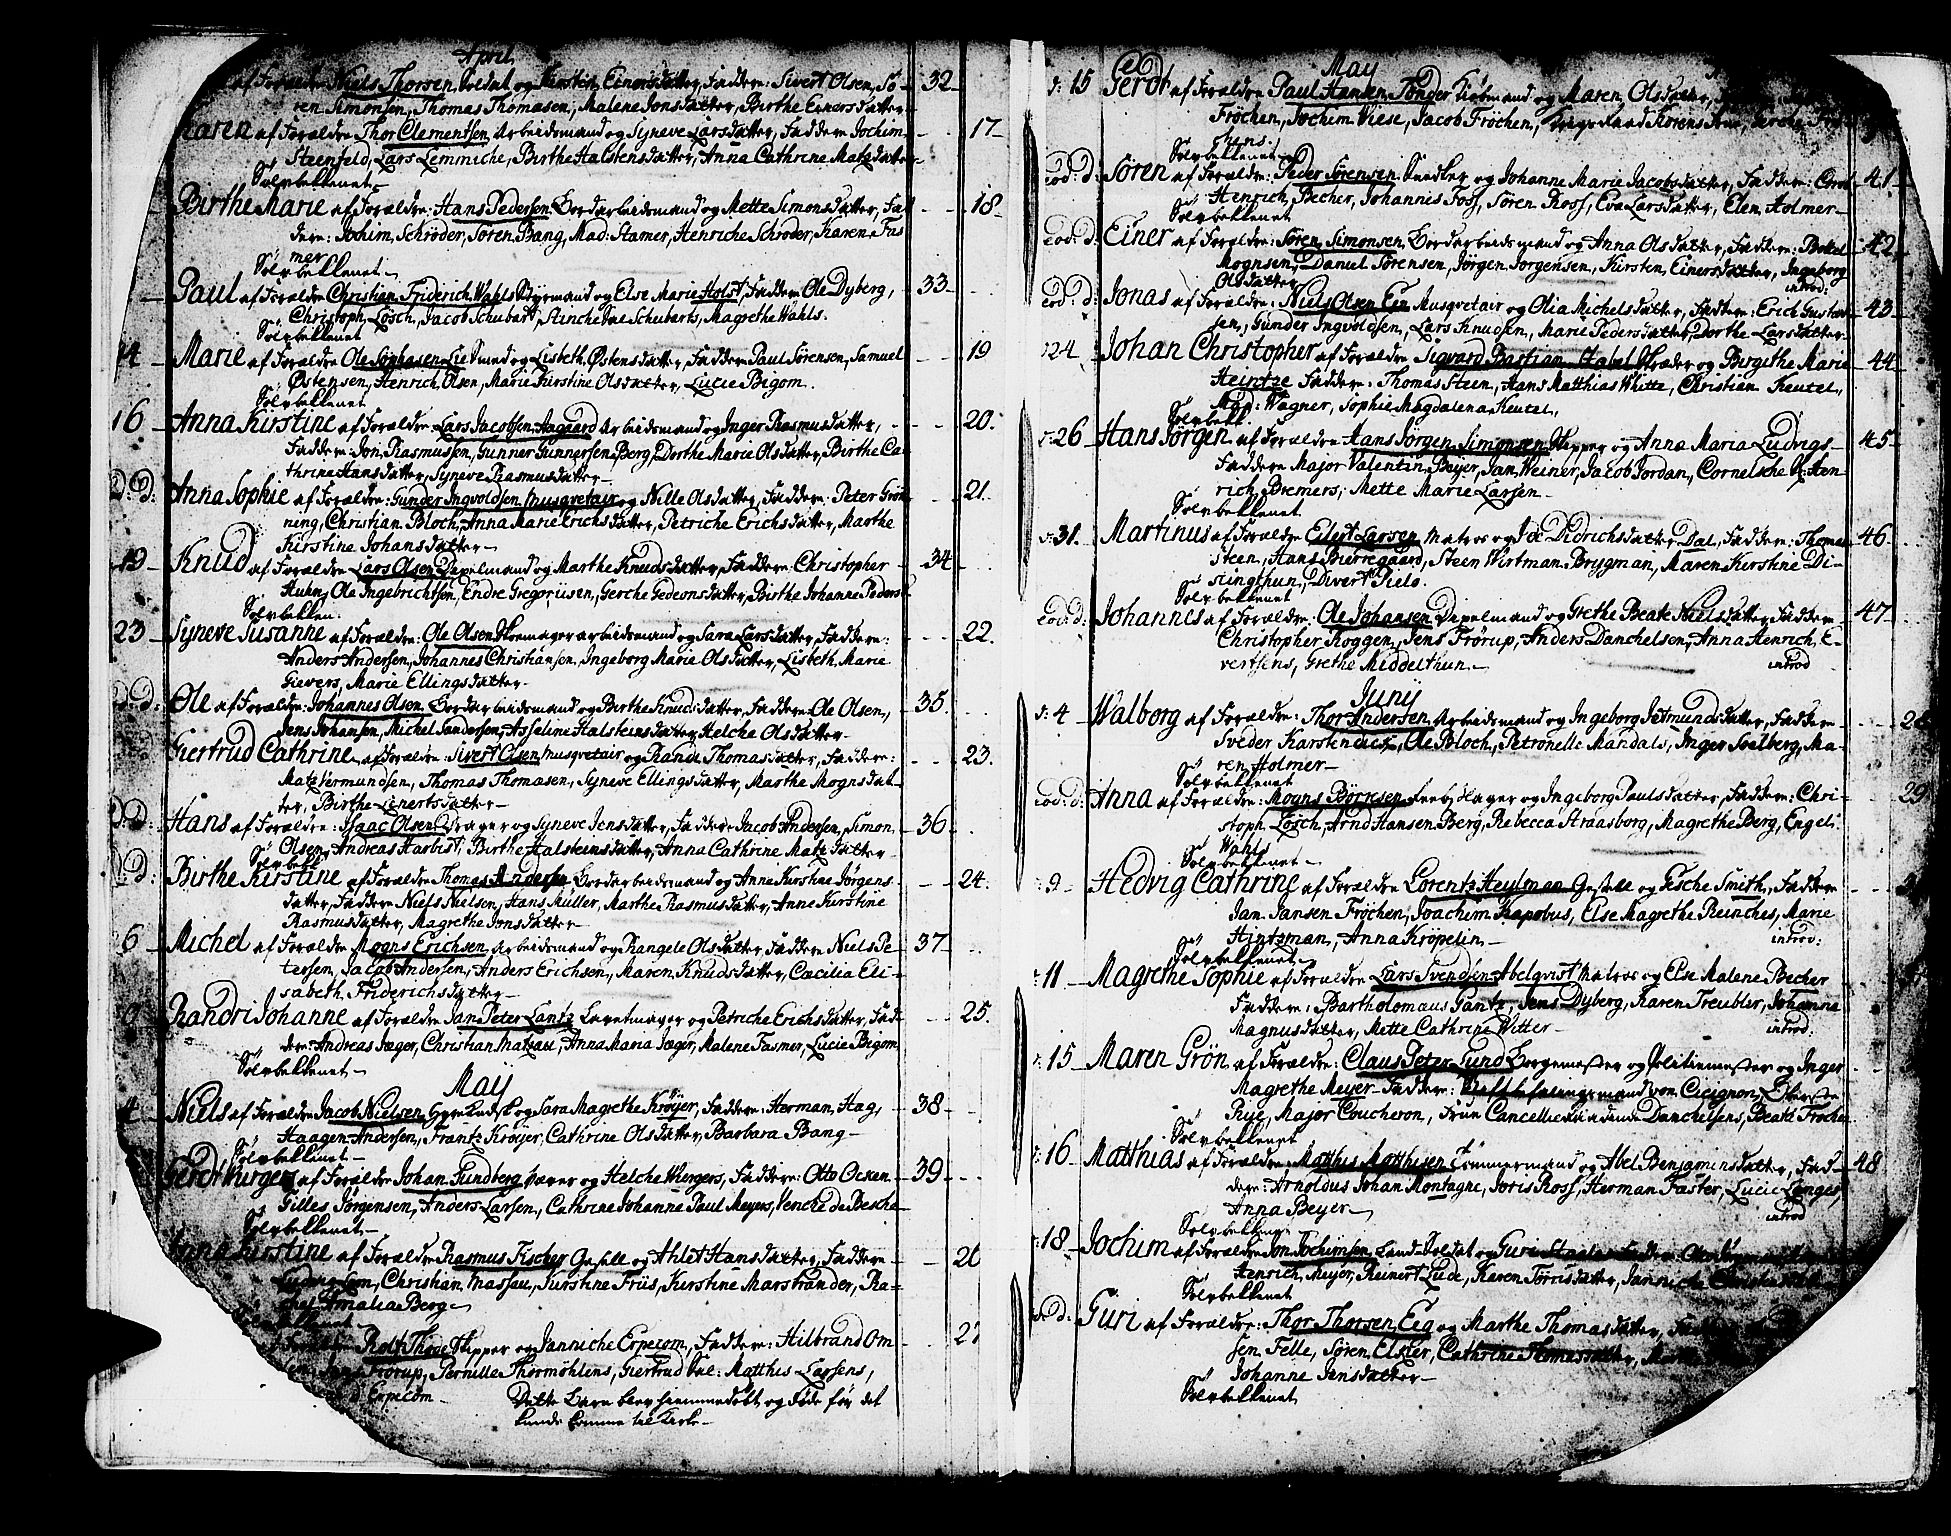 April
af Forældre Niels Thorsen Soldat og Kirsten Einersdatter, Faddere: Sivert Olsen, Sö- 32
ren Simonsen, Thomas Thomasen, Malene Jonsdatter, Birthe Einersdatter
Karen af Forældre Thor Clementsen Arbeidsmand og Syneve Larsdatter, Faddere Jochim 17
Steenfeld, Lars Lemmiche, Birthe Halstensdatter, Anna Cathrine Matzdatter
Sölvbekkenet
Birthe Marie af Forældre: Hans Pedersen Bordarbeidsmand og Mette Simonsdatter, Fad 18
dere: Jochim Schröder, Sören Bang, Mad: Stamer, Henriche Schröder, Karen Fas
mer
Sölvbekkenet
Paul af Forældre Christian Friderich Wahls Styrmand og Else Marie Holst, Faddere Ole Dyberg, 33
Christoph Lösch, Jacob Schubart, Stinche Schubarts, Magrethe Wahls.
Sölvbekkenet
14 Marie af Forældre Ole Lie Smed og Lisbeth Östensdatter, Faddere Paul Sörensen, Samuel 19
Östensen, Henrich Olsen, Marie Kirstine Olsdatter, Lucie Bigom.
Sölvbekkenet
16 Anna Kirstine af Forældre Lars Jacobsen Aagaard Arbeidsmand og Inger Rasmusdatter, 20.
Faddere: Jon Rasmussen, Gunner Gunnersen Berg, Dorthe Marie Olsdatter, Birthe Ca-
thrine Hansdatter, Syneve Rasmusdatter
D. d: Anna Sophie af Forældre: Gunder Ingvoldsen Musqvetair og Nille Olsdatter, Faddere: Peter Grön 21.
ning, Christian Bloch, Anna Marie Erichsdatter, Petriche Erichsdatter, Marthe
Kirstine Johansdatter
19 Knud af Forældre Lars Olsen Dæpelmand og Marthe Knudsdatter, Faddere: Christopher 34
Huhn, Ole Ingebrichtsen, Endre Gregoriusen, Gerche Gedeonsdatter, Birthe Johanne Peders
Sölvbekken:
23 Syneve Susanne af Forældre: Ole Olsen arbeidsmand og Sara Larsdatter, Faddere: 22.
Anders Andersen, Johannes Christiansen, Ingeborg Marie Olsdatter, Lisbeth Marie
Gievers, Marie Ellingsdatter
D. d: Ole af Forældre: Johannes Olsen Bordarbeidsmand og Birthe Knudsdatter, Faddere Ole Olsen, 35.
Jens Johansen, Michel Sandersen, Asseline Halsteinsdatter, Helche Olsdatter
Giertrud Cathrine af Forældre: Sivert Olsen Musqvetair og Randi Thomasdatter, Faddere: 23.
Matz Iermundsen, Thomas Thomasen, Syneve Ellingsdatter, Marthe Mognsdat-
ter, Birthe Lenertsdatter
D. d: Hans af Forældre: Isaac Olsen Drager og Syneve Jensdatter, Faddere Jacob Andersen, Simon 36
Olsen, Andreas Harbist, Birthe Halsteinsdatter, Anna Cathrine Matzdatter
Sölvbekk:
D. d: Birthe Kirstine af Forældre Thomas Andersen Bordarbeidsmand og Anne Kirstine Jörgens 24.
datter, Faddere Niels Nielsen, Hans Müller, Marthe Rasmusdatter, Anne Kirstine
Rasmusdatter, Magrethe Jonsdatter
6 Michel af Forældre Mogns Erichsen Arbeidsmand og Rangele Olsdatter, Faddere Niels Pe- 37
tersen, Jacob Andersen, Anders Erichsen, Maren Knudsdatter, Cæcilia Eli-
sabeth Friderichsdatter
Randri Johanne af Forældre Jan Peter Lantz og Petriche Erichsdatter, Fad- 25.
dere: Andreas Jæger, Christian Matzau, Anna Maria Jæger, Malene Fasmer, Lucie Bigom
Sölvbekkenet
Maij
4 Niels af Forældre Jacob Nielsen og Sara Magrethe Kröyer, Faddere: Herman Hag, 38
Haagen Andersen, Frantz Kröyer, Cathrine Olsdatter, Barbara Bang
Sölvbekkenet
Gerdt Wurgers af Forældre Johan Sundberg og Helche Wurgers, Faddere: Otto Ocken 39
Gilles Jörgensen, Anders Larsen, Cathrine Johanne Paul Meyers, Venche de Besche
Sölvbekkenet
Anna Kirstine af Forældre Rasmus Fischer Gesell og Ahlet Hansdatter, Faddere 26
Christian Massau, Kirstine Friis, Kirstine Marstrander, Ra-
chel Amalia Berg
Sölvbekkenet
Rolf Thode Skipper og Janniche Erpecom, Faddere: Hilbrand Om 27
Frörup, Pernille Thormöhlens, Giertrud Matthis Lassens,
Erpecom Dette Barn blev hiemmedöbt og döde för det
kunde komme til Kirke
May
d: 15 Gerdt af Forældre Paul Hansen Tönder Kiöbmand og Maren Olsdatter,
Fröchen, Jochim Wiese, Jacob Fröchen,
Sölvbekkenet
eod: d: Sören af Forældre: Peder Sörensen Snedker og Johanne Marie Jacobsdatter, Faddere: 41.
Henrich Becher, Johannis Foss, Sören Ross, Eva Larsdatter, Elen Holmer
Sölvbekkenet
eod: d: Einer af Forældre: Sören Simonsen Bordarbeidsmand og Anna Olsdatter, Faddere: Bottel 42
Mognsen, Daniel Sörensen, Jörgen Jorgensen, Kirsten Einersdatter, Ingeborg
Olsdatter introd:
eod: d: Jonas af Forældre: Niels Olsen Eeg Musqvetair og Olia Michelsdatter, Faddere: Erich Gustav 43
sen, Gunder Ingvoldsen, Lars Knudsen, Marie Pedersdatter, Dorthe Larsdatter
24 Johan Christopher af Forældre Sigvard Bastian Stabel Skræder og Birgithe Marie 44
Heintze Faddere: Thomas Steen, Hans Matthias Whitte, Christian Keutel,
Mad: Wagner, Sophie Magdalena Keutel,
Sölvbekk:
26 Hans Jörgen af Forældre Hans Jörgen Simonsen Skipper og Anna Maria Ludvigs 45
Faddere Major Valentin Beyer, Jan Weiner, Jacob Jordan, Cornelsche Hen-
rich Bremers, Mette Marie Larsen
Sölvbekkenet
31. Martinus af Forældre Eilert Larsen Matros og Ide Didrichsdatter Dal, Faddere: Thomas 46
Steen, Hans Bierregaard, Steen Wirtman Brygman, Maren Kirstine Di-
stingthun, Divert Piels.
Sölvbekkenet
eod: d: Johannes af Forældre: Ole Johansen Dæpelmand og Grethe Beate Nielsdatter Faddere 47
Christopher Roggen, Jens Frörup, Anders Danchelsen, Anna Henrich E-
vertsens, Grethe Middelthun introd
Junij
d: 4 Walborg af Forældre: Thor Andersen Arbeidsmand og Ingeborg Jetmundsdatter, Faddere 28
Sveder Karstendich, Ole Bloch, Petronelle Mandals, Inger Soelberg, Ma-
ren Holmer
Sölvbekkenet
eod: d: Anna af Forældre: Mogns Börresen og Ingeborg Paulsdatter, Faddere: Chri- 29
stoph Lösch, Arnd Hansen Berg, Rebecca Straasborg, Magrethe Berg, Engel
Wahls
Sölvbekkenet
9 Hedvig Cathrine af Forældre Lorentz Heylman Gesell og Tesche Smith, Faddere
Jan Jansen Fröchen, Joachim Kapobus, Else Magrethe Reinches, Marie
Hintzman, Anna Kröpelin introd:
Sölvbekkenet
11 Magrethe Sophie af Forældre Lars Svendsen Abelqvist Matros og Else Malene Becher
Faddere: Bartholomæus Gantz, Jens Dyberg, Karen Treubler, Johanna
Magnusdatter, Mette Cathrine Witter introd.
15 Maren Grön af Forældre: Claus Peter Sund Borgemester og Politiemester og Inger
Magrethe Meyer Faddere: Stiftbefalingsmand von Cicignon, Oberste
Rye, Major Coucheron, Frue Cancellieraadinde Danchelsens, Beate Fröchen
Sölvbekkenet
16 Matthias af Forældre: Matthis Matthisen Tömmermand og Abel Benjaminsdatter, Fad- 48
dere: Arnoldus Johan Montagne, Joris Ross, Herman Faster, Lucie Langes,
Anna Beyer introd
Sölvbekkenet
18. Jochim af Forældre Jon Jochimsen Land-Soldat og Guri
Henrich Meyer, Reinert Lude, Karen Torrisdatter, Janniche
Sölvbekkenet
eod: Guri af Forældre: Thor Thorsen Eeg og Marthe Thomasdatter,
sen Felle, Sören Elster, Cathrine Thomasdatter,
Johanne Jensdatter
Sölvbekkenet